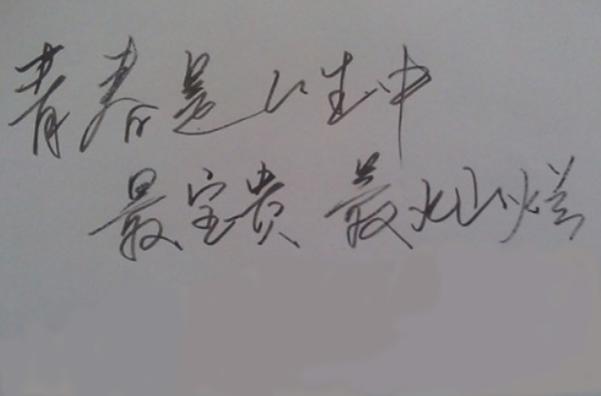 青春是人生中
最宝贵 最灿烂